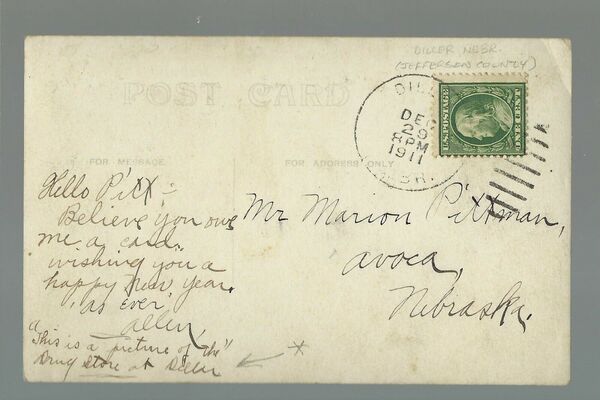 DILLER NEBR.
(JEFFERSON COUNTY)
POST CARD
DILL
DEC
29
8 PM
1911
EBR.
U.S. POSTAGE
ONE CENT
FOR MESSAGE
FOR ADDRESS ONLY
Hello Pitt :-
Believe you owe
me a card.
wishing you a
happy new year.
as ever,
allen,
"This is a picture of the"
Drug store at Diller
Mr Marion Pittman,
avoca,
Nebraska.